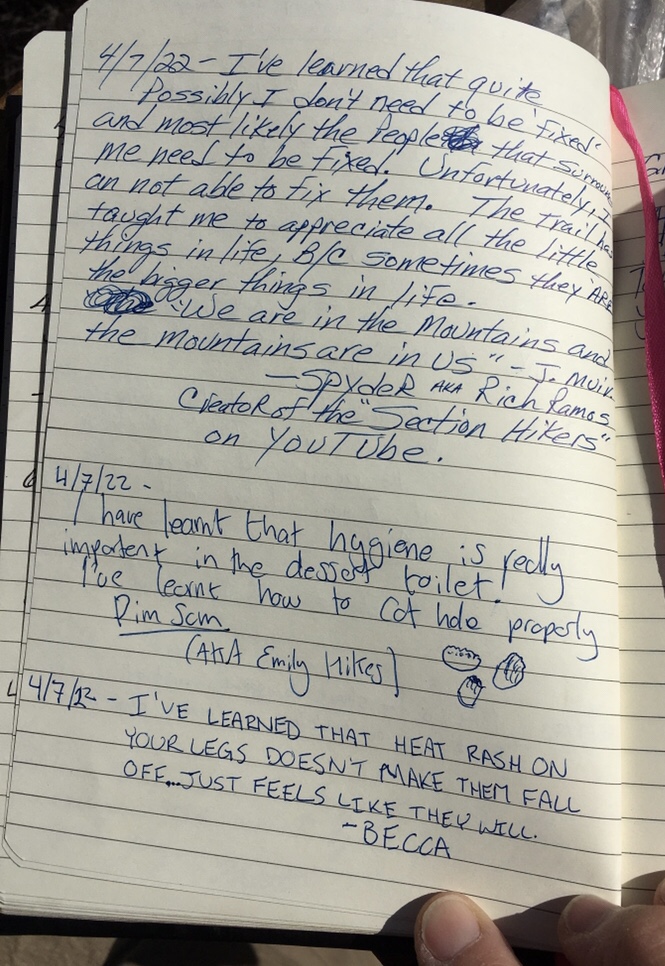 4/7/22 - I've learned that quite
Possibly I don't need to be "fixed"
and most likely the People that surroun
me need to be fixed. Unfortunately, I
am not able to fix them. The Trail has
taught me to appreciate all the little
things in life, B/C sometimes they ARE
the bigger things in life.
"We are in the Mountains and
the mountains are in us" - J. Muir
- SPYDER AKA Rich Ramos
Creator of the "Section Hikers"
on YouTube.
4/7/22 -
I have learnt that hygiene is really
important in the dessert toilet!
I've learnt how to cat hole properly
Dim Sum
(AKA Emily Hikes)
4/7/22 - I'VE LEARNED THAT HEAT RASH ON
YOUR LEGS DOESN'T MAKE THEM FALL
OFF...JUST FEELS LIKE THEY WILL.
- BECCA